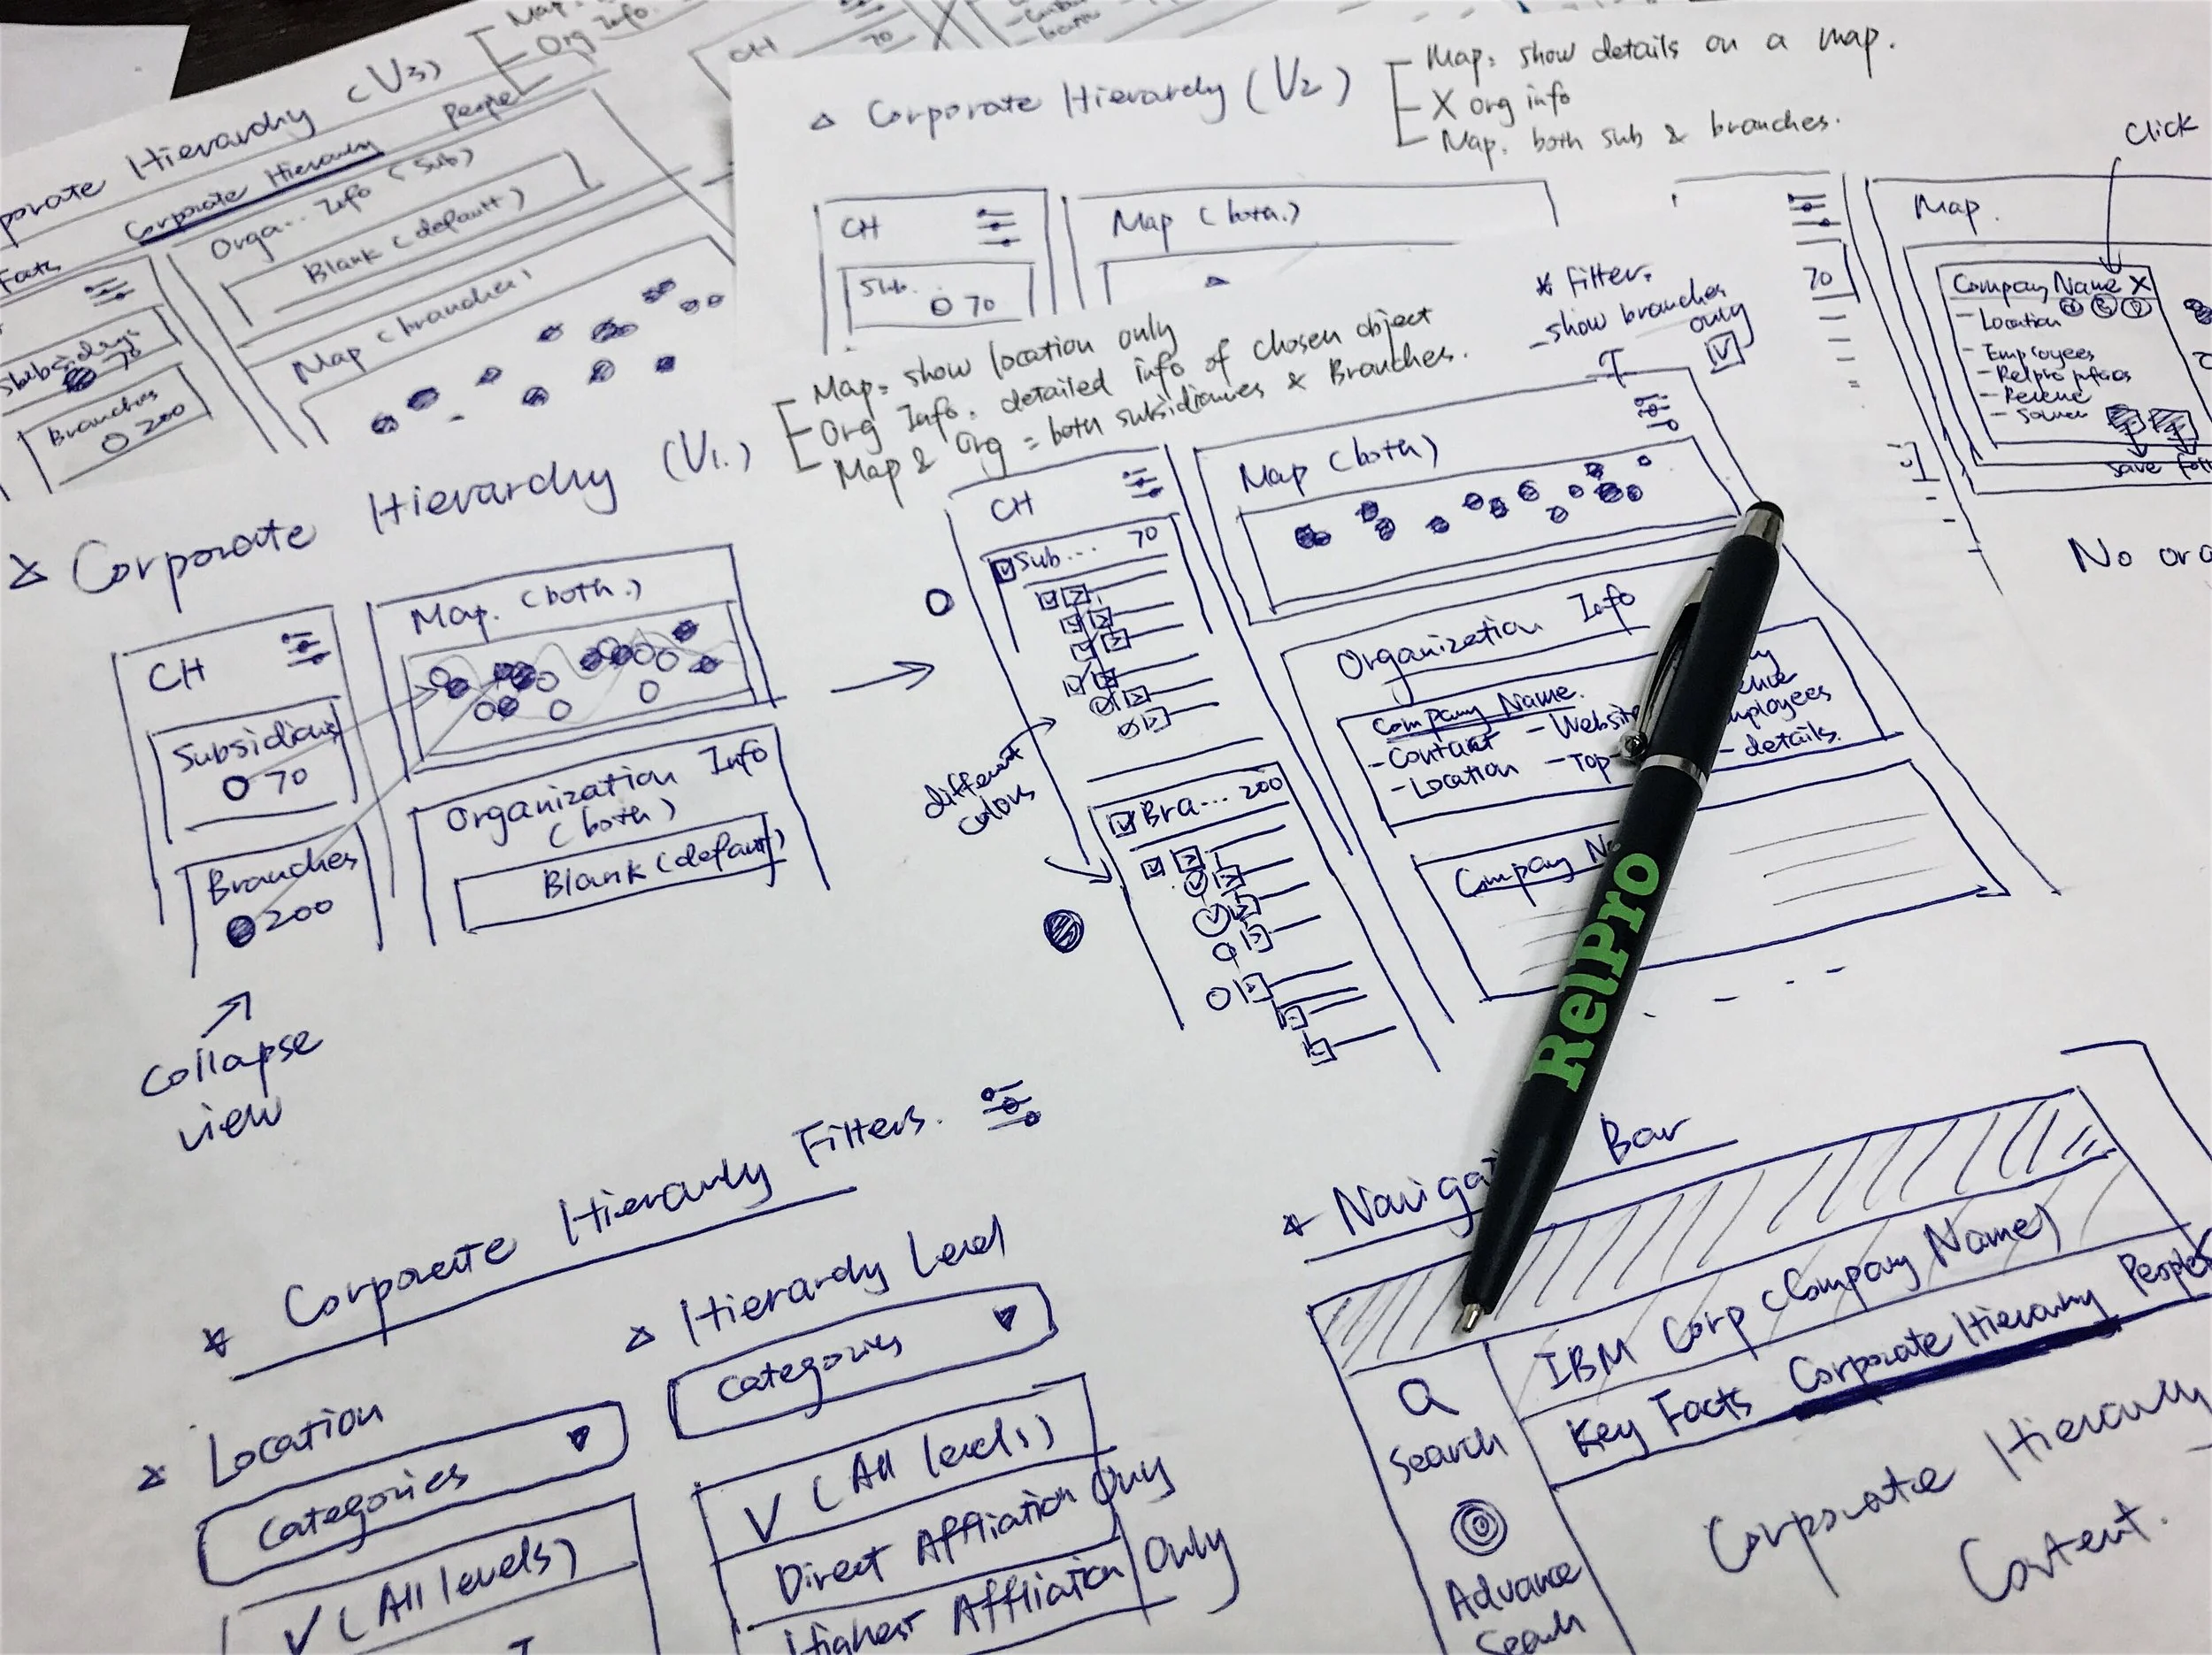 Corporate Hierarchy (V2)
Map: show details on a map.
X org info
Map. both sub & branches.
CH
Sub.
70
Map (both.)
70
* Filter.
- show branches
only
Click
Map.
Company Name X
- Location
- Employees
- Revenue
- Source
Save
Hierarchy (V3)
Map
Org Info.
Corporate Hierarchy
People
Facts
Orga... Info (Sub)
Blank (default)
Map (branches)
70
Branches
200
CH
70
Corporate Hierarchy (V1.)
Map = show location only
Org Info. detailed info of chosen object
Map & Org = both subsidiaries & Branches.
CH
Subsidiary
70
Branches
200
Map. (both.)
Organization Info
(both)
Blank (default)
Collapse
view
CH
Sub... 70
Bra... 200
different
colors
Map (both)
Organization Info
Company Name.
- Contact
- Website
- Location
- Top
- details.
Company
RelPro
* Corporate Hierarchy Filters.
Location
Categories
V (All levels)
Hierarchy Level
Categories
V (All levels)
Direct Affliation Only
Highest Affliation Only
Bar
IBM Corp (Company Name)
Key Facts Corporate Hierarchy People
Search
Advance
Search
Corporate Hierarchy
Content.